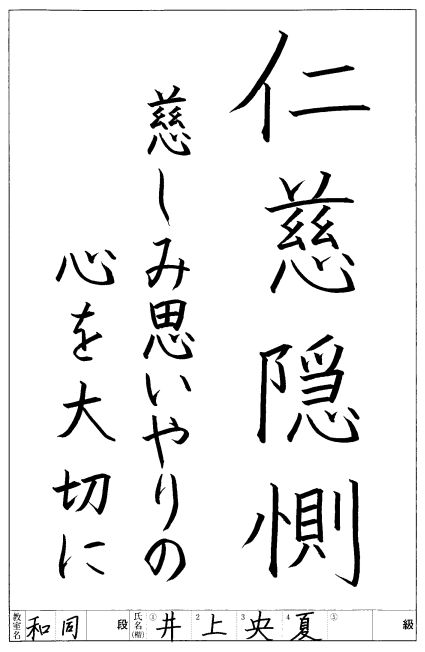 仁慈隠惻
慈しみ思いやりの
心を大切に
教室名 和同 段 氏名(楷) ① 井 2 上 3 央 4 夏 ⑤ 級